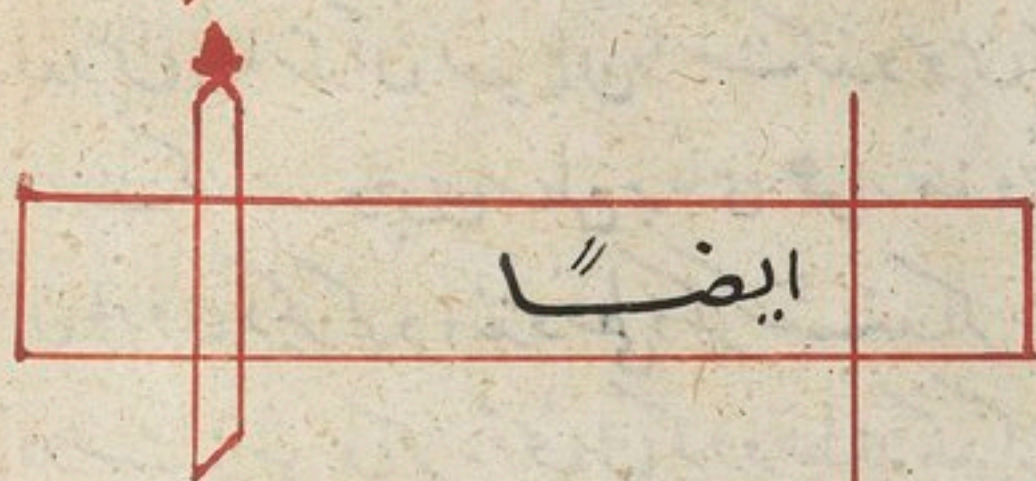 ايضًا